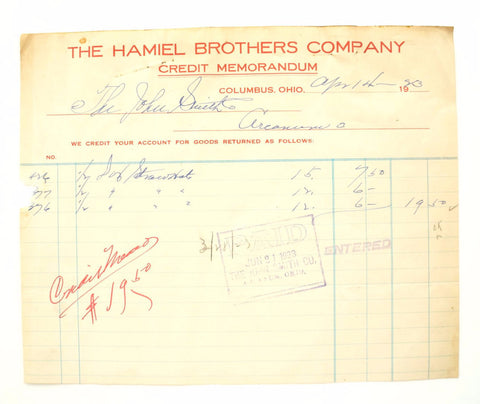 THE HAMIEL BROTHERS COMPANY
CREDIT MEMORANDUM
COLUMBUS, OHIO, Apr 14 1923
The John Smith Co
Arcanum O
WE CREDIT YOUR ACCOUNT FOR GOODS RETURNED AS FOLLOWS:
NO.
1/2 Straw Hats 15. 7.50
1/2 " " " 12. 6-
276 1/2 " " " 12. 6- 19.50
PAID
JUN 21 1923
THE JOHN SMITH CO.
ENTERED
Credit Memo
$19.50